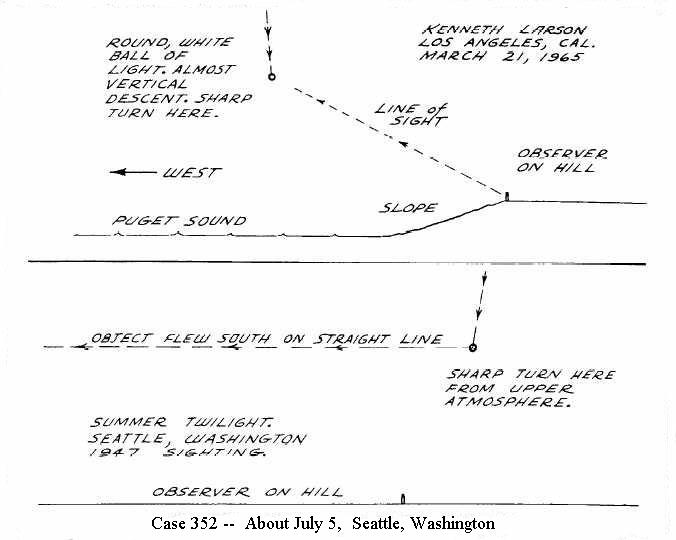 ROUND, WHITE
BALL OF
LIGHT. ALMOST
VERTICAL
DESCENT. SHARP
TURN HERE.
KENNETH LARSON
LOS ANGELES, CAL.
MARCH 21, 1965
LINE of
SIGHT
OBSERVER
ON HILL
WEST
SLOPE
PUGET SOUND
OBJECT FLEW SOUTH ON STRAIGHT LINE
SHARP TURN HERE
FROM UPPER
ATMOSPHERE.
SUMMER TWILIGHT.
SEATTLE, WASHINGTON
1947 SIGHTING.
OBSERVER ON HILL
Case 352 -- About July 5, Seattle, Washington